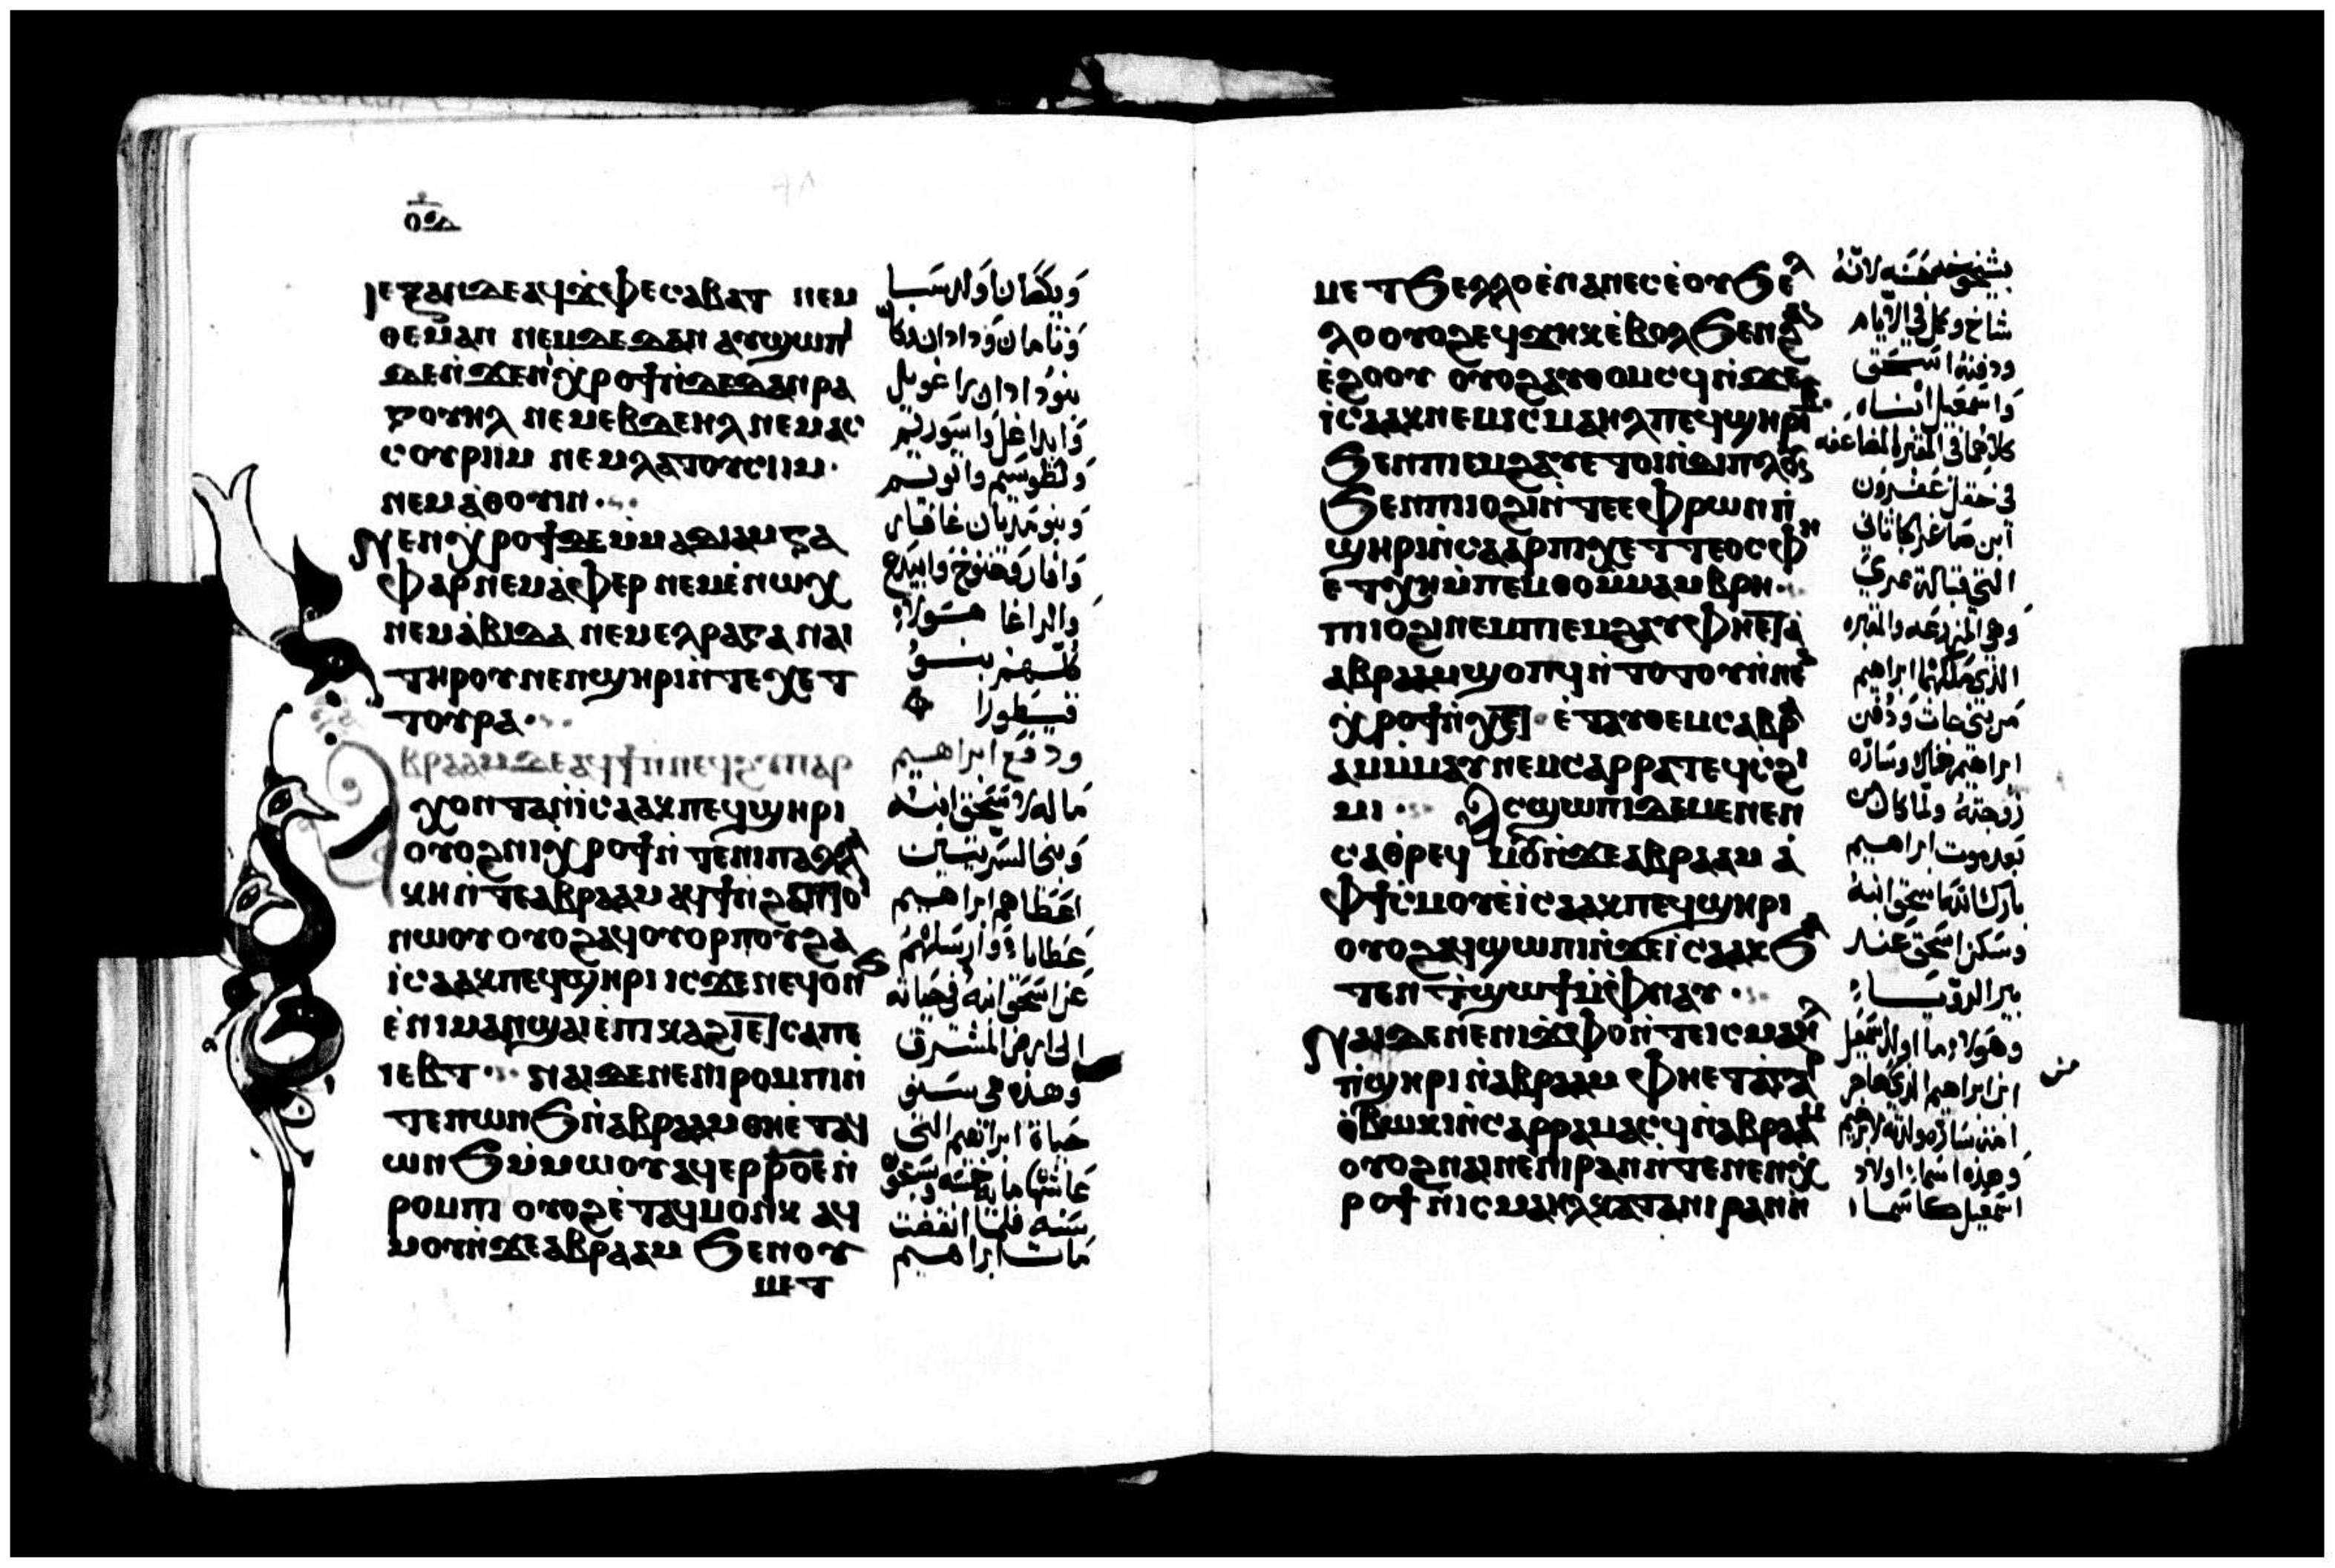 ⲓⲉⲝⲁⲛⲇⲉⲁϥϫⲫⲉⲥⲁⲃⲁⲧ ⲛⲉⲙ
ⲑⲉⲙⲁⲛ ⲛⲉⲙⲇⲉⲇⲁⲛ ⲁⲩϣⲱⲡⲓ
ⲇⲉⲛϫⲉⲛϣⲏⲣⲟϯⲛⲇⲉⲇⲁⲛⲣⲁ
ⲅⲟⲩⲏⲗ ⲛⲉⲙⲉⲃⲇⲉⲏⲗ ⲛⲉⲙⲁⲥ
ⲥⲟⲩⲣⲓⲓⲙ ⲛⲉⲙⲗⲁⲧⲟⲩⲥⲓⲓⲙ
ⲛⲉⲙⲁⲑⲟⲩⲓⲛ
ⲛⲉⲛϣⲏⲣⲟϯⲇⲉⲙⲙⲁⲇⲓⲁⲙⲅⲁ
ⲫⲁⲣⲛⲉⲙⲁⲫⲉⲣ ⲛⲉⲙⲉⲛⲱⲭ
ⲛⲉⲙⲁⲃⲓⲇⲁ ⲛⲉⲙⲉⲗⲣⲁⲅⲁ ⲛⲁⲓ
ⲧⲏⲣⲟⲩⲛⲉⲛϣⲏⲣⲓⲛⲧⲉⲭⲉⲧ
ⲧⲟⲩⲣⲁ
ⲁⲃⲣⲁⲁⲙⲇⲉⲁϥϯⲛⲛⲉϥϩⲩⲡⲁⲣ
ⲭⲟⲛⲧⲁⲛⲓⲥⲁⲁⲕⲡⲉϥϣⲏⲣⲓ
ⲟⲩⲟϩⲛⲓϣⲏⲣⲟϯⲛⲧⲉⲛⲓⲡⲁⲗⲗⲁ
ⲕⲏⲛⲧⲉⲁⲃⲣⲁⲁⲙ ⲁϥϯⲛϩⲁⲛⲧⲁⲓⲟ
ⲛⲱⲟⲩ ⲟⲩⲟϩⲁϥⲟⲩⲟⲣⲡⲟⲩϩⲁ
ⲓⲥⲁⲁⲕⲡⲉϥϣⲏⲣⲓ ⲓⲥϫⲉⲛⲉϥⲟⲛϧ
ⲉⲛⲓⲙⲁⲛϣⲁⲓⲉⲡⲓⲕⲁϩⲓⲉⲧⲥⲁⲡⲉ
ⲓⲉⲃⲧ ⲛⲁⲓⲇⲉⲛⲉⲛⲓⲣⲟⲙⲡⲓⲛ
ⲧⲉⲡⲱⲛϧⲛⲁⲃⲣⲁⲁⲙ ⲑⲏⲉⲧⲁϥ
ⲱⲛϧⲙⲙⲱⲟⲩ ⲁϥⲉⲣⲣⲟⲉⲛ
ⲣⲟⲙⲡⲓ ⲟⲩⲟϩⲉⲧⲁϥⲙⲟⲛⲕ ⲁϥ
ⲙⲟⲩⲛϫⲉⲁⲃⲣⲁⲁⲙ ϧⲉⲛⲟⲩ
ⲙⲉⲧ
ويقشان اولد سبا
وتامان وددان وكان
بنو دادان راغويل
وابداغل واسوريم
ولطوسيم واتوئيم
وبنو مديان غافار
وافار وحنوخ وابيداع
والراغا هولاء
كلهم بنو
قيطورا
ودفع ابراهيم
ماله لاسحق ابنه
وبني السريتين
اعطاهم ابراهيم
عطايا وارسلهم
عن اسحق ابنه في حياته
الى ارض المشرق
وهذه هي سنو
حياة ابراهيم التي
عاشها مايه خمسه وسبعون
سنه فلما انقضت
مات ابراهيم
ⲙⲉⲧϧⲉⲗⲗⲟⲉⲛⲁⲛⲉⲥⲉⲟⲩϧⲉⲗ
ⲗⲟ ⲟⲩⲟϩⲉϥϫⲏⲕⲉⲃⲟⲗϧⲉⲛϩⲁⲛ
ⲉϩⲟⲟⲩ ⲟⲩⲟϩⲁⲩⲑⲟⲙⲥϥⲛϫⲉ
ⲓⲥⲁⲁⲕⲛⲉⲙⲓⲥⲙⲁⲏⲗⲡⲉϥϣⲏⲣⲓ
ϧⲉⲛⲡⲓⲉⲙϩⲁⲩⲉⲧⲟⲓⲛⲇⲓⲡⲗⲟⲩⲛ
ϧⲉⲛⲡⲓⲓⲟϩⲓⲛⲧⲉⲉⲫⲣⲱⲛⲡ
ϣⲏⲣⲓⲛⲥⲁⲁⲣⲡⲓⲭⲉⲧⲧⲉⲟⲥⲫⲏ
ⲉⲧⲭⲏⲙⲡⲉⲙⲑⲟⲙⲙⲁⲙⲃⲣⲏ
ⲡⲓⲓⲟϩⲓⲛⲉⲙⲡⲓⲉⲙϩⲁⲩⲫⲏⲉⲧⲁ
ⲁⲃⲣⲁⲁⲙϣⲟⲡϥⲛⲧⲟⲧⲟⲩⲛⲛⲉⲛ
ϣⲏⲣⲟϯⲛⲭⲉⲧ ⲉⲧⲁⲩⲑⲉⲙⲥⲁⲃⲣ
ⲁⲙⲙⲙⲁⲩⲛⲉⲙⲥⲁⲣⲣⲁⲧⲉϥⲥϩⲓ
ⲙⲓ ⲁⲥϣⲱⲡⲓⲇⲉⲙⲉⲛⲉⲛ
ⲥⲁⲑⲣⲉϥⲙⲟⲩⲛϫⲉⲁⲃⲣⲁⲁⲙ ⲁ
ⲫϯⲥⲙⲟⲩⲉⲓⲥⲁⲁⲕⲡⲉϥϣⲏⲣⲓ
ⲟⲩⲟϩⲁϥϣⲱⲡⲓⲛϫⲉⲓⲥⲁⲁⲕϧⲁ
ⲧⲉⲛϯϣⲱϯⲙⲫⲛⲁⲩ
ⲛⲁⲓⲇⲉⲛⲉⲛⲓϫⲫⲟⲛⲧⲉⲓⲥⲙⲁⲏⲗ
ⲡϣⲏⲣⲓⲛⲁⲃⲣⲁⲁⲙ ⲫⲏⲉⲧⲁⲁⲅⲁⲣ
ⲑⲃⲱⲕⲓⲛⲥⲁⲣⲣⲁⲙⲁⲥϥⲛⲁⲃⲣⲁⲁⲙ
ⲟⲩⲟϩⲛⲁⲓⲛⲉⲛⲓⲣⲁⲛⲛⲧⲉⲛⲉⲛϣⲏ
ⲣⲟϯⲛⲓⲥⲙⲁⲏⲗⲕⲁⲧⲁⲛⲓⲣⲁⲛⲛ
بشيخوخه حسنه لانه
شاخ وكمل في الايام
ودفنه اسحق
واسمعيل ابناه
كلاهما في المقبره المضاعفه
في حقل عفرون
ابن صاغر كاتاني
التي قبالة ممري
وهي المزرعه والمقبره
الذي ملكها ابراهيم
من بني حاث ودفن
ابراهيم هناك وساره
زوجته ولما كان من
بعد موت ابراهيم
بارك الله اسحق ابنه
وسكن اسحق عند
بير الرويا
وهولاء هم اولاد اسمعيل
ابن ابراهيم الذي لهاجر
امة ساره ولدته لابراهيم
وهذه اسماء اولاد
اسمعيل كاسماء